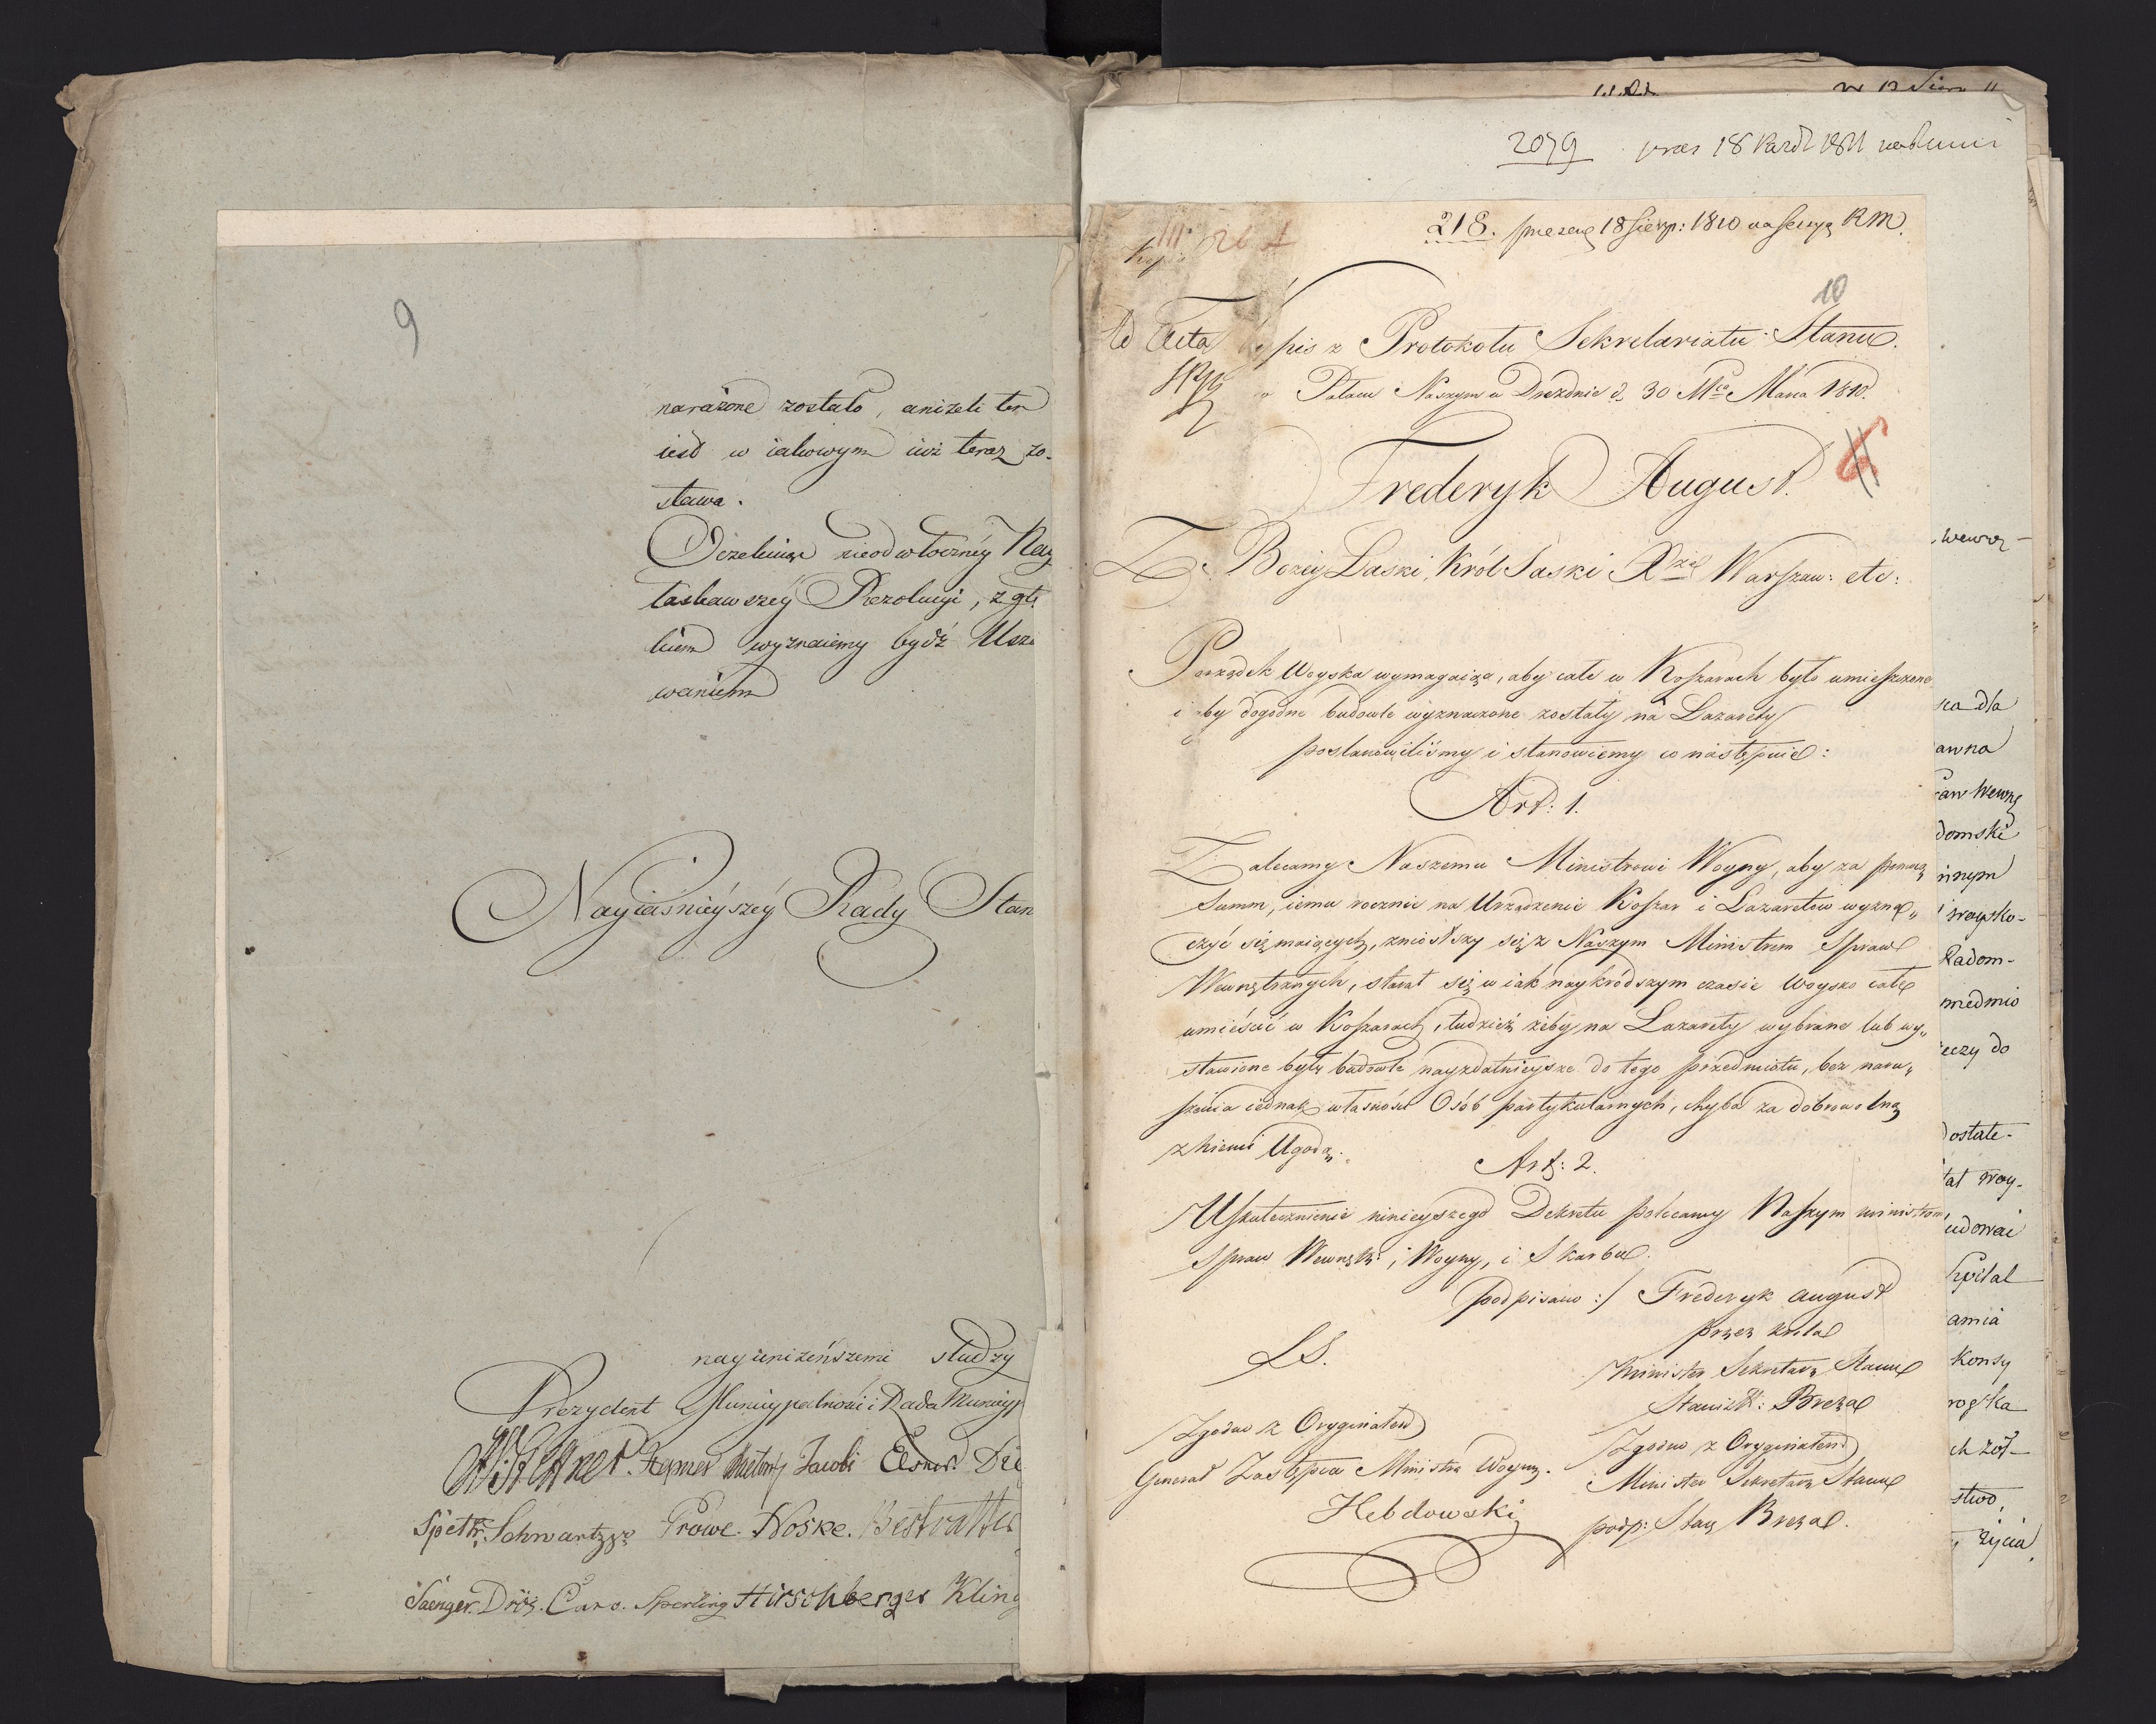 9
narażone zostało, aniżeli ten
iest w iakowym iuż teraz zo-
stawa.
Oczekuiąc nieodwłoczney Nay
łaskawszey Rezolucyi, z głę
kiem wyznaiemy bydź Usza
waniem
Nayiaśnieyszey Rady Stan
nayuniżeńszemi słudzy
Prezydent Municypalności i Rada Municyp
Hepner Jacobi Elsner
Schwartz Prowe. Noske.
Saenger. Caro. Sperling Hirschberger Kling
2079 18 Paźdź 1811
218. prezen 18 Sierp: 1810 na Sessyą RM.
10
Kopia
Ad Acta pis z Protokołu Sekretariatu Stanu.
w Pałacu Naszym w Dreznie d. 30 Mca Marca 1810.
Frederyk August.
Z Bożey Łaski, Król Saski Xże Warszaw: etc:
Porządek Woyska wymagaiąc, aby całe w Koszarach było umieszczone
i aby dogodne budowle wyznaczone zostały na Lazarety
postanowiliśmy i stanowiemy co następuie:
Art: 1.
Zalecamy Naszemu Ministrowi Woyny, aby za pomocą
Summ, iemu rocznie na Urządzenie Koszar i Lazaretów wyzna„
czyć się maiących, zniosłszy się z Naszym Ministrem Spraw
Wewnętrznych, starał się w iak naykrótszym czasie Woysko całe
umieścić w Koszarach, tudzież żeby na Lazarety wybrane lub wy„
stawione były budowle nayzdatnieysze do tego przedmiotu, bez naru„
szenia iednak własności Osób partykularnych, chyba za dobrowolną
z niemi Ugodą.
Art: 2.
Uskutecznienie ninieyszego Dekretu polecamy Naszym ministrom
Spraw Wewnętr:, Woyny, i Skarbu.
podpisano :/ Frederyk August
przez Króla
LS.
Minister Sekretarz Stanu
Stanisł: Breza
Zgodno z Oryginałem
Zgodno z Oryginałem
Generał Zastępca Ministra Woyny.
Minister Sekretarz Stanu
Hebdowski
podp: Stan Breza.
ca dla
awna
raw Wewnę
domski
innym
woysko-
Radom-
eczy do
dostate-
tat woy-
udować
Szpital
amia
Konsy
ch żoł-
stwo,
życia,